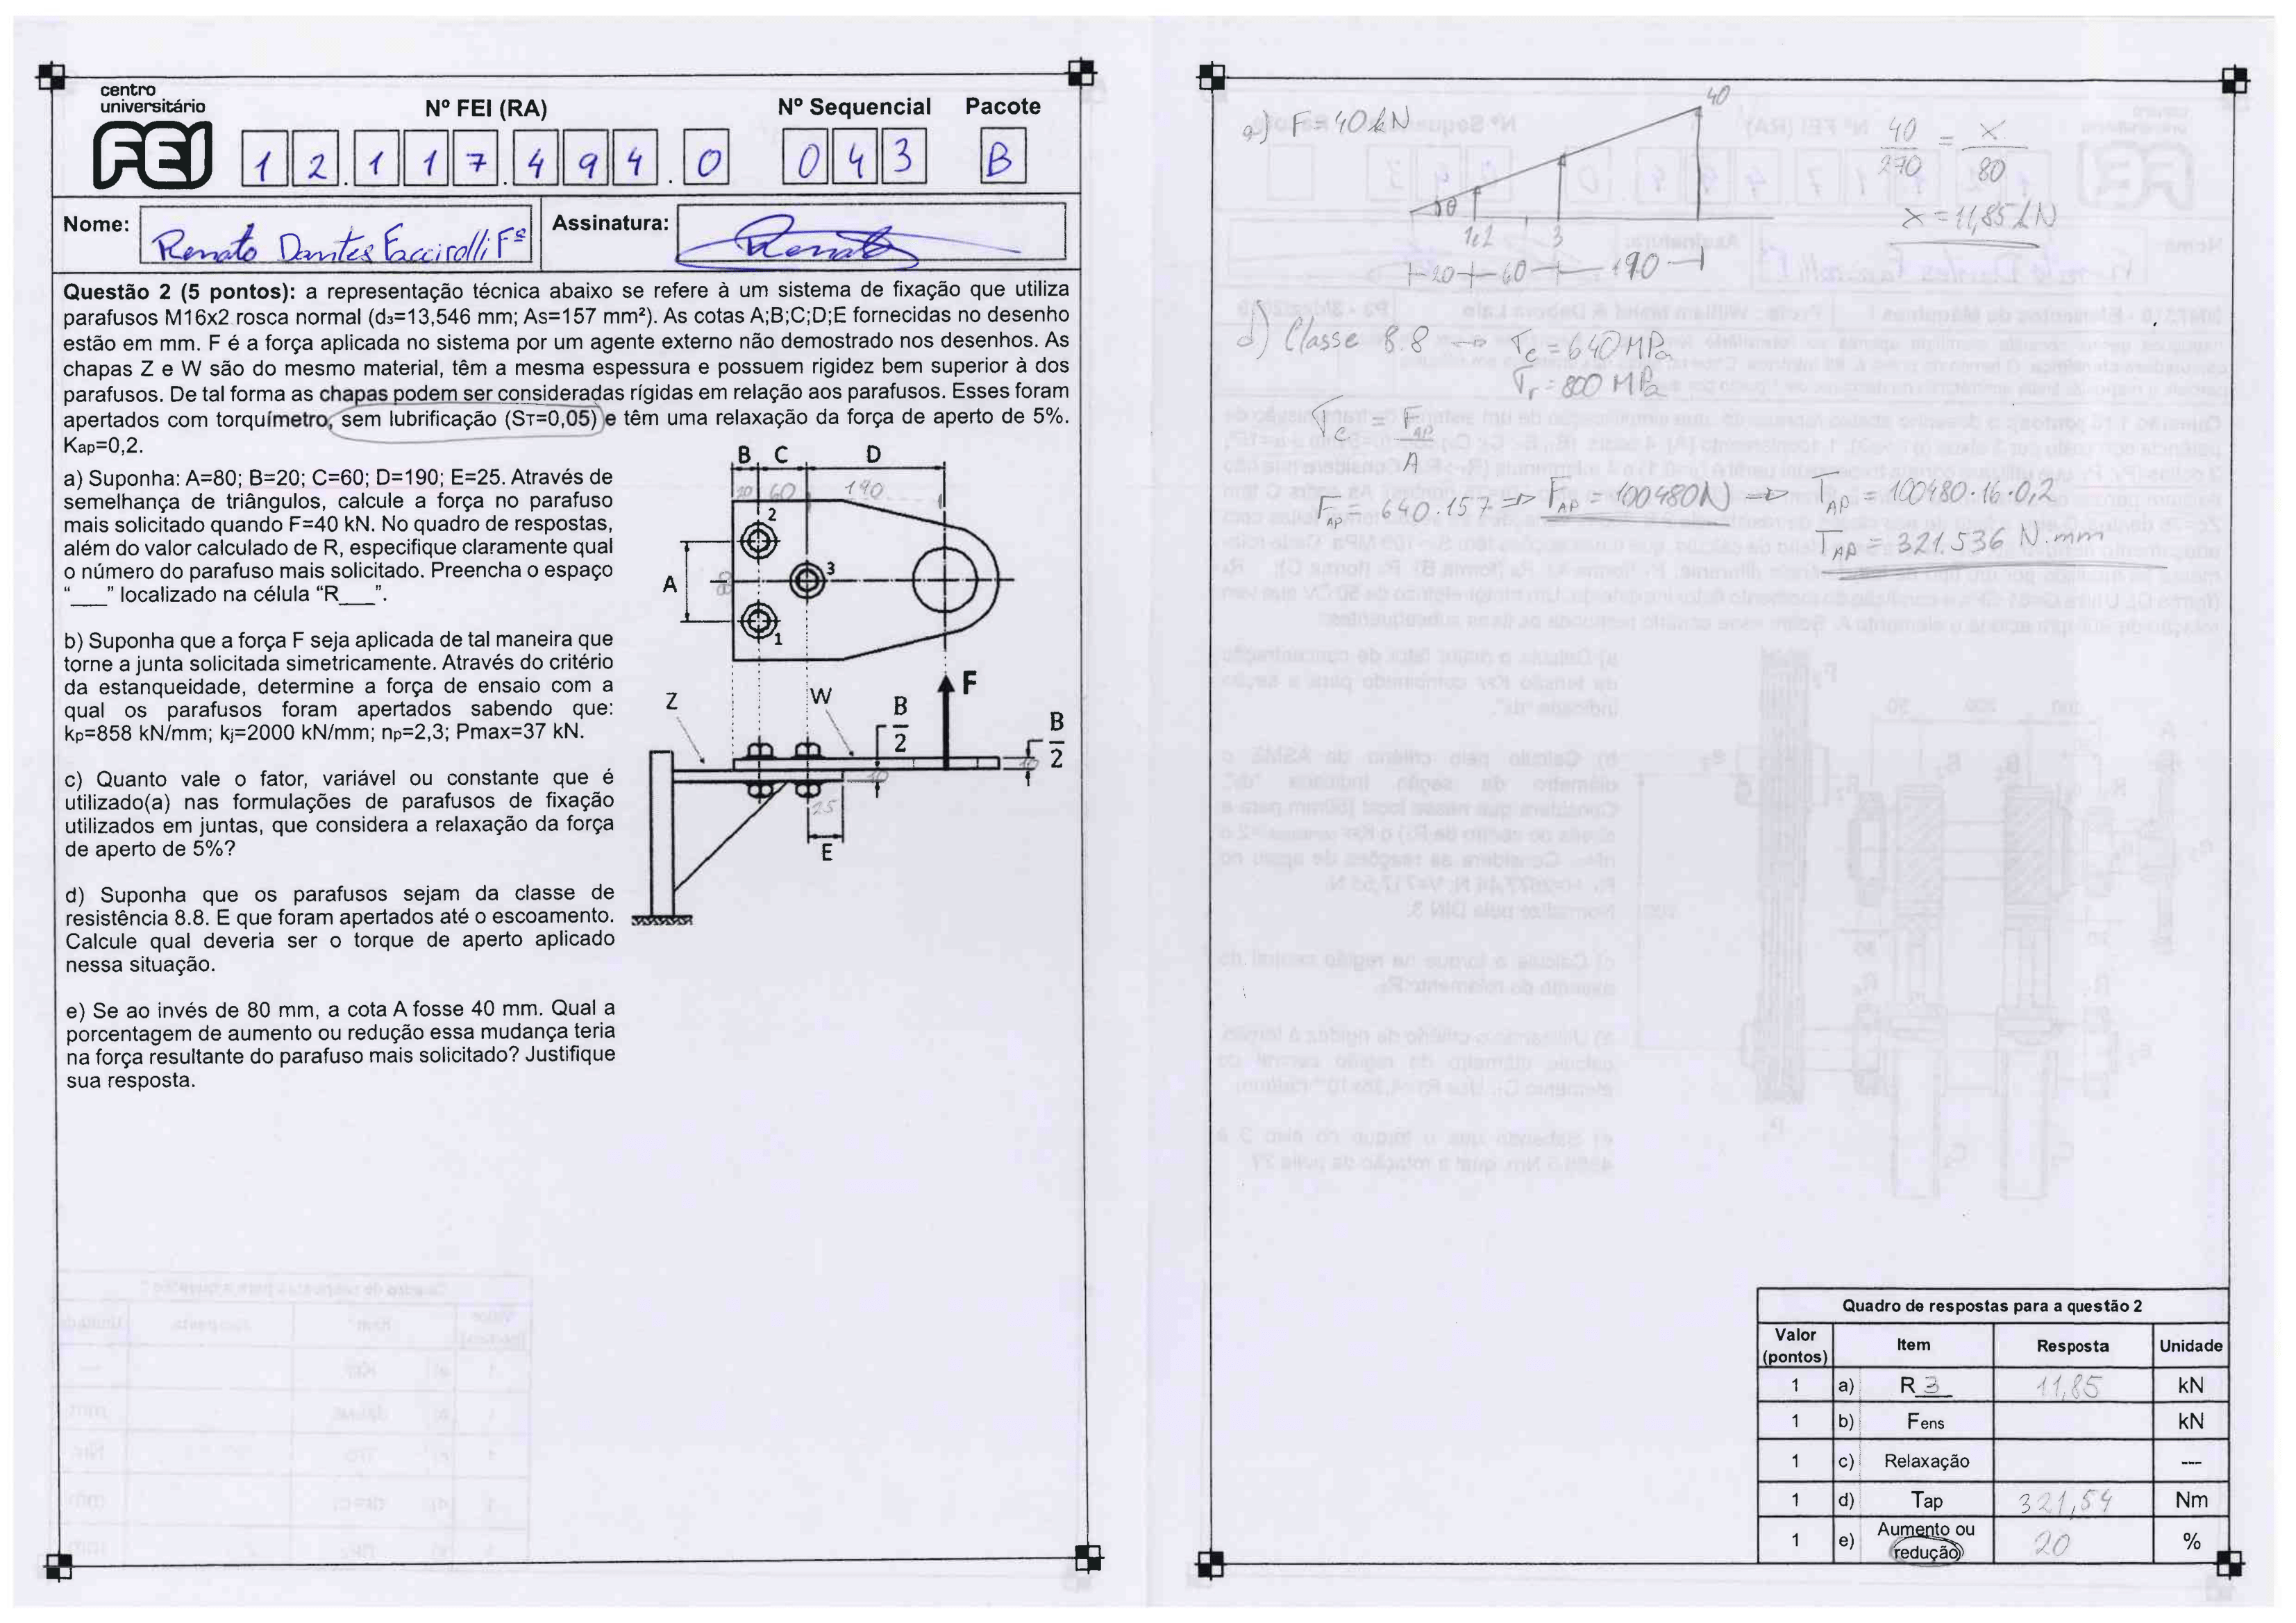 centro
universitário
FEI
Nº FEI (RA)
Nº Sequencial
Pacote
1 2 . 1 1 7 . 4 9 4 . 0
0 4 3
B
Nome:
Renato Dantes Faccirolli Fº
Assinatura:
Renato
Questão 2 (5 pontos): a representação técnica abaixo se refere à um sistema de fixação que utiliza
parafusos M16x2 rosca normal (d₃=13,546 mm; As=157 mm²). As cotas A;B;C;D;E fornecidas no desenho
estão em mm. F é a força aplicada no sistema por um agente externo não demostrado nos desenhos. As
chapas Z e W são do mesmo material, têm a mesma espessura e possuem rigidez bem superior à dos
parafusos. De tal forma as chapas podem ser consideradas rígidas em relação aos parafusos. Esses foram
apertados com torquímetro, sem lubrificação (Sᴛ=0,05) e têm uma relaxação da força de aperto de 5%.
Kap=0,2.
a) Suponha: A=80; B=20; C=60; D=190; E=25. Através de
semelhança de triângulos, calcule a força no parafuso
mais solicitado quando F=40 kN. No quadro de respostas,
além do valor calculado de R, especifique claramente qual
o número do parafuso mais solicitado. Preencha o espaço
“___” localizado na célula “R___”.
b) Suponha que a força F seja aplicada de tal maneira que
torne a junta solicitada simetricamente. Através do critério
da estanqueidade, determine a força de ensaio com a
qual os parafusos foram apertados sabendo que:
kp=858 kN/mm; kj=2000 kN/mm; np=2,3; Pmax=37 kN.
c) Quanto vale o fator, variável ou constante que é
utilizado(a) nas formulações de parafusos de fixação
utilizados em juntas, que considera a relaxação da força
de aperto de 5%?
d) Suponha que os parafusos sejam da classe de
resistência 8.8. E que foram apertados até o escoamento.
Calcule qual deveria ser o torque de aperto aplicado
nessa situação.
e) Se ao invés de 80 mm, a cota A fosse 40 mm. Qual a
porcentagem de aumento ou redução essa mudança teria
na força resultante do parafuso mais solicitado? Justifique
sua resposta.
B C D
20 60 190
2
A 80 3
1
Z W F
B/2 B/2
10 10
25
E
a) F=40 kN
40
θ
1e2 3
20 60 190
40/270 = x/80
x = 11,85 kN
d) Classe 8.8 → σe = 640 MPa
σr = 800 MPa
σe = FAP/A
FAP = 640.157 → FAP = 100480N → TAP = 100480.16.0,2
TAP = 321.536 N.mm
Quadro de respostas para a questão 2
Valor (pontos) Item Resposta Unidade
1 a) R 3 11,85 kN
1 b) Fens kN
1 c) Relaxação ---
1 d) Tap 321,54 Nm
1 e) Aumento ou redução 20 %